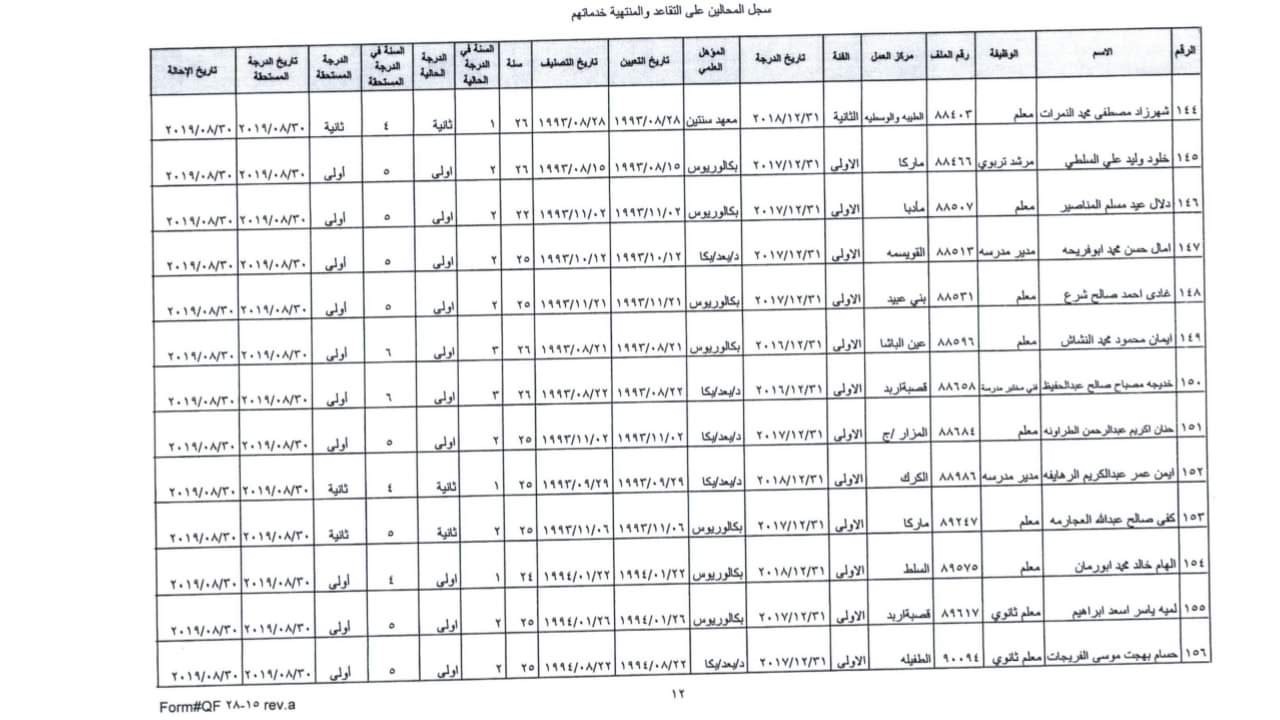 سجل المحالين على التقاعد والمنتهية خدماتهم
الرقم الاسم الوظيفة رقم الملف مركز العمل الفئة تاريخ الدرجة المؤهل العلمي تاريخ التعيين تاريخ التصنيف سنة السنة في الدرجة الحالية الدرجة الحالية السنة في الدرجة المستحقة الدرجة المستحقة تاريخ الدرجة المستحقة تاريخ الإحالة
١٤٤ شهرزاد مصطفى محمد النمرات معلم ٨٨٤٠٣ الطيبه والوسطيه الثانية ٢٠١٨/١٢/٣١ معهد سنتين ١٩٩٣/٠٨/٢٨ ١٩٩٣/٠٨/٢٨ ٢٦ ١ ثانية ٤ ثانية ٢٠١٩/٠٨/٣٠ ٢٠١٩/٠٨/٣٠
١٤٥ خلود وليد علي السلطي مرشد تربوي ٨٨٤٦٦ ماركا الاولى ٢٠١٧/١٢/٣١ بكالوريوس ١٩٩٣/٠٨/١٥ ١٩٩٣/٠٨/١٥ ٢٦ ٢ اولى ٥ أولى ٢٠١٩/٠٨/٣٠ ٢٠١٩/٠٨/٣٠
١٤٦ دلال عيد مسلم المناصير معلم ٨٨٥٠٧ مأدبا الاولى ٢٠١٧/١٢/٣١ بكالوريوس ١٩٩٣/١١/٠٢ ١٩٩٣/١١/٠٢ ٢٢ ٢ اولى ٥ أولى ٢٠١٩/٠٨/٣٠ ٢٠١٩/٠٨/٣٠
١٤٧ امال حسن محمد ابوفريحه مدير مدرسه ٨٨٥١٣ القويسمه الاولى ٢٠١٧/١٢/٣١ د/بعد/بكا ١٩٩٣/١٠/١٢ ١٩٩٣/١٠/١٢ ٢٥ ٢ اولى ٥ أولى ٢٠١٩/٠٨/٣٠ ٢٠١٩/٠٨/٣٠
١٤٨ غادى احمد صالح شرع معلم ٨٨٥٣١ بني عبيد الاولى ٢٠١٧/١٢/٣١ بكالوريوس ١٩٩٣/١١/٢١ ١٩٩٣/١١/٢١ ٢٥ ٢ اولى ٥ أولى ٢٠١٩/٠٨/٣٠ ٢٠١٩/٠٨/٣٠
١٤٩ ايمان محمود محمد النشاش معلم ٨٨٥٩٦ عين الباشا الاولى ٢٠١٦/١٢/٣١ بكالوريوس ١٩٩٣/٠٨/٢١ ١٩٩٣/٠٨/٢١ ٢٦ ٣ اولى ٦ أولى ٢٠١٩/٠٨/٣٠ ٢٠١٩/٠٨/٣٠
١٥٠ خديجه مصباح صالح عبدالحفيظ فني مختبر مدرسة ٨٨٦٥٨ قصبةاربد الاولى ٢٠١٦/١٢/٣١ د/بعد/بكا ١٩٩٣/٠٨/٢٢ ١٩٩٣/٠٨/٢٢ ٢٦ ٣ اولى ٦ أولى ٢٠١٩/٠٨/٣٠ ٢٠١٩/٠٨/٣٠
١٥١ حنان اكريم عبدالرحمن الطراونه معلم ٨٨٦٨٤ المزار /ج الاولى ٢٠١٧/١٢/٣١ د/بعد/بكا ١٩٩٣/١١/٠٢ ١٩٩٣/١١/٠٢ ٢٥ ٢ اولى ٥ أولى ٢٠١٩/٠٨/٣٠ ٢٠١٩/٠٨/٣٠
١٥٢ ايمن عمر عبدالكريم الرهايفه مدير مدرسه ٨٨٩٨٦ الكرك الاولى ٢٠١٨/١٢/٣١ د/بعد/بكا ١٩٩٣/٠٩/٢٩ ١٩٩٣/٠٩/٢٩ ٢٥ ١ ثانية ٤ ثانية ٢٠١٩/٠٨/٣٠ ٢٠١٩/٠٨/٣٠
١٥٣ كفى صالح عبدالله العجارمه معلم ٨٩٢٤٧ ماركا الاولى ٢٠١٧/١٢/٣١ بكالوريوس ١٩٩٣/١١/٠٦ ١٩٩٣/١١/٠٦ ٢٥ ٢ ثانية ٥ ثانية ٢٠١٩/٠٨/٣٠ ٢٠١٩/٠٨/٣٠
١٥٤ الهام خالد محمد ابورمان معلم ٨٩٥٧٥ السلط الاولى ٢٠١٨/١٢/٣١ بكالوريوس ١٩٩٤/٠١/٢٢ ١٩٩٤/٠١/٢٢ ٢٤ ١ اولى ٤ أولى ٢٠١٩/٠٨/٣٠ ٢٠١٩/٠٨/٣٠
١٥٥ لميه ياسر اسعد ابراهيم معلم ثانوي ٨٩٦١٧ قصبةاربد الاولى ٢٠١٧/١٢/٣١ بكالوريوس ١٩٩٤/٠١/٢٦ ١٩٩٤/٠١/٢٦ ٢٥ ٢ اولى ٥ أولى ٢٠١٩/٠٨/٣٠ ٢٠١٩/٠٨/٣٠
١٥٦ حسام بهجت موسى الفريجات معلم ثانوي ٩٠٠٩٤ الطفيله الاولى ٢٠١٧/١٢/٣١ د/بعد/بكا ١٩٩٤/٠٨/٢٢ ١٩٩٤/٠٨/٢٢ ٢٥ ٢ اولى ٥ أولى ٢٠١٩/٠٨/٣٠ ٢٠١٩/٠٨/٣٠
١٢
Form#QF ٢٨-١٥ rev.a